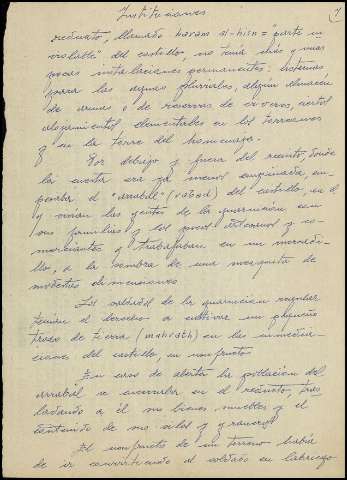 Instituciones
7
recinto, llamado haram al-hisn = "parte in
violable" del castillo, no tenía más que unas
pocas instalaciones permanentes: cisternas
para las aguas pluviales, algún almacén
de armas o de reservas de víveres, ciertos
alojamientos elementales en los torreones
y en la torre del homenaje.
Por debajo y fuera del recinto, donde
la cuesta era ya menos empinada, em-
pezaba el "arrabal" (rabad) del castillo, en el
q vivían las gentes de la guarnición con
sus familias y los pocos artesanos y co-
merciantes q trabajaban en un mercadi-
llo, a la sombra de una mezquita de
modestas dimensiones.
Los soldados de la guarnición regular
tenían el derecho a cultivar un pequeño
trozo de tierra (mahrath) en las inmedia-
ciones del castillo, en usufructo.
En caso de alerta la población del
arrabal se encerraba en el recinto, tras
ladando a él sus bienes muebles y el
contenido de sus silos y graneros.
El usufructo de un terreno había
de ir convirtiendo al soldado en labriego